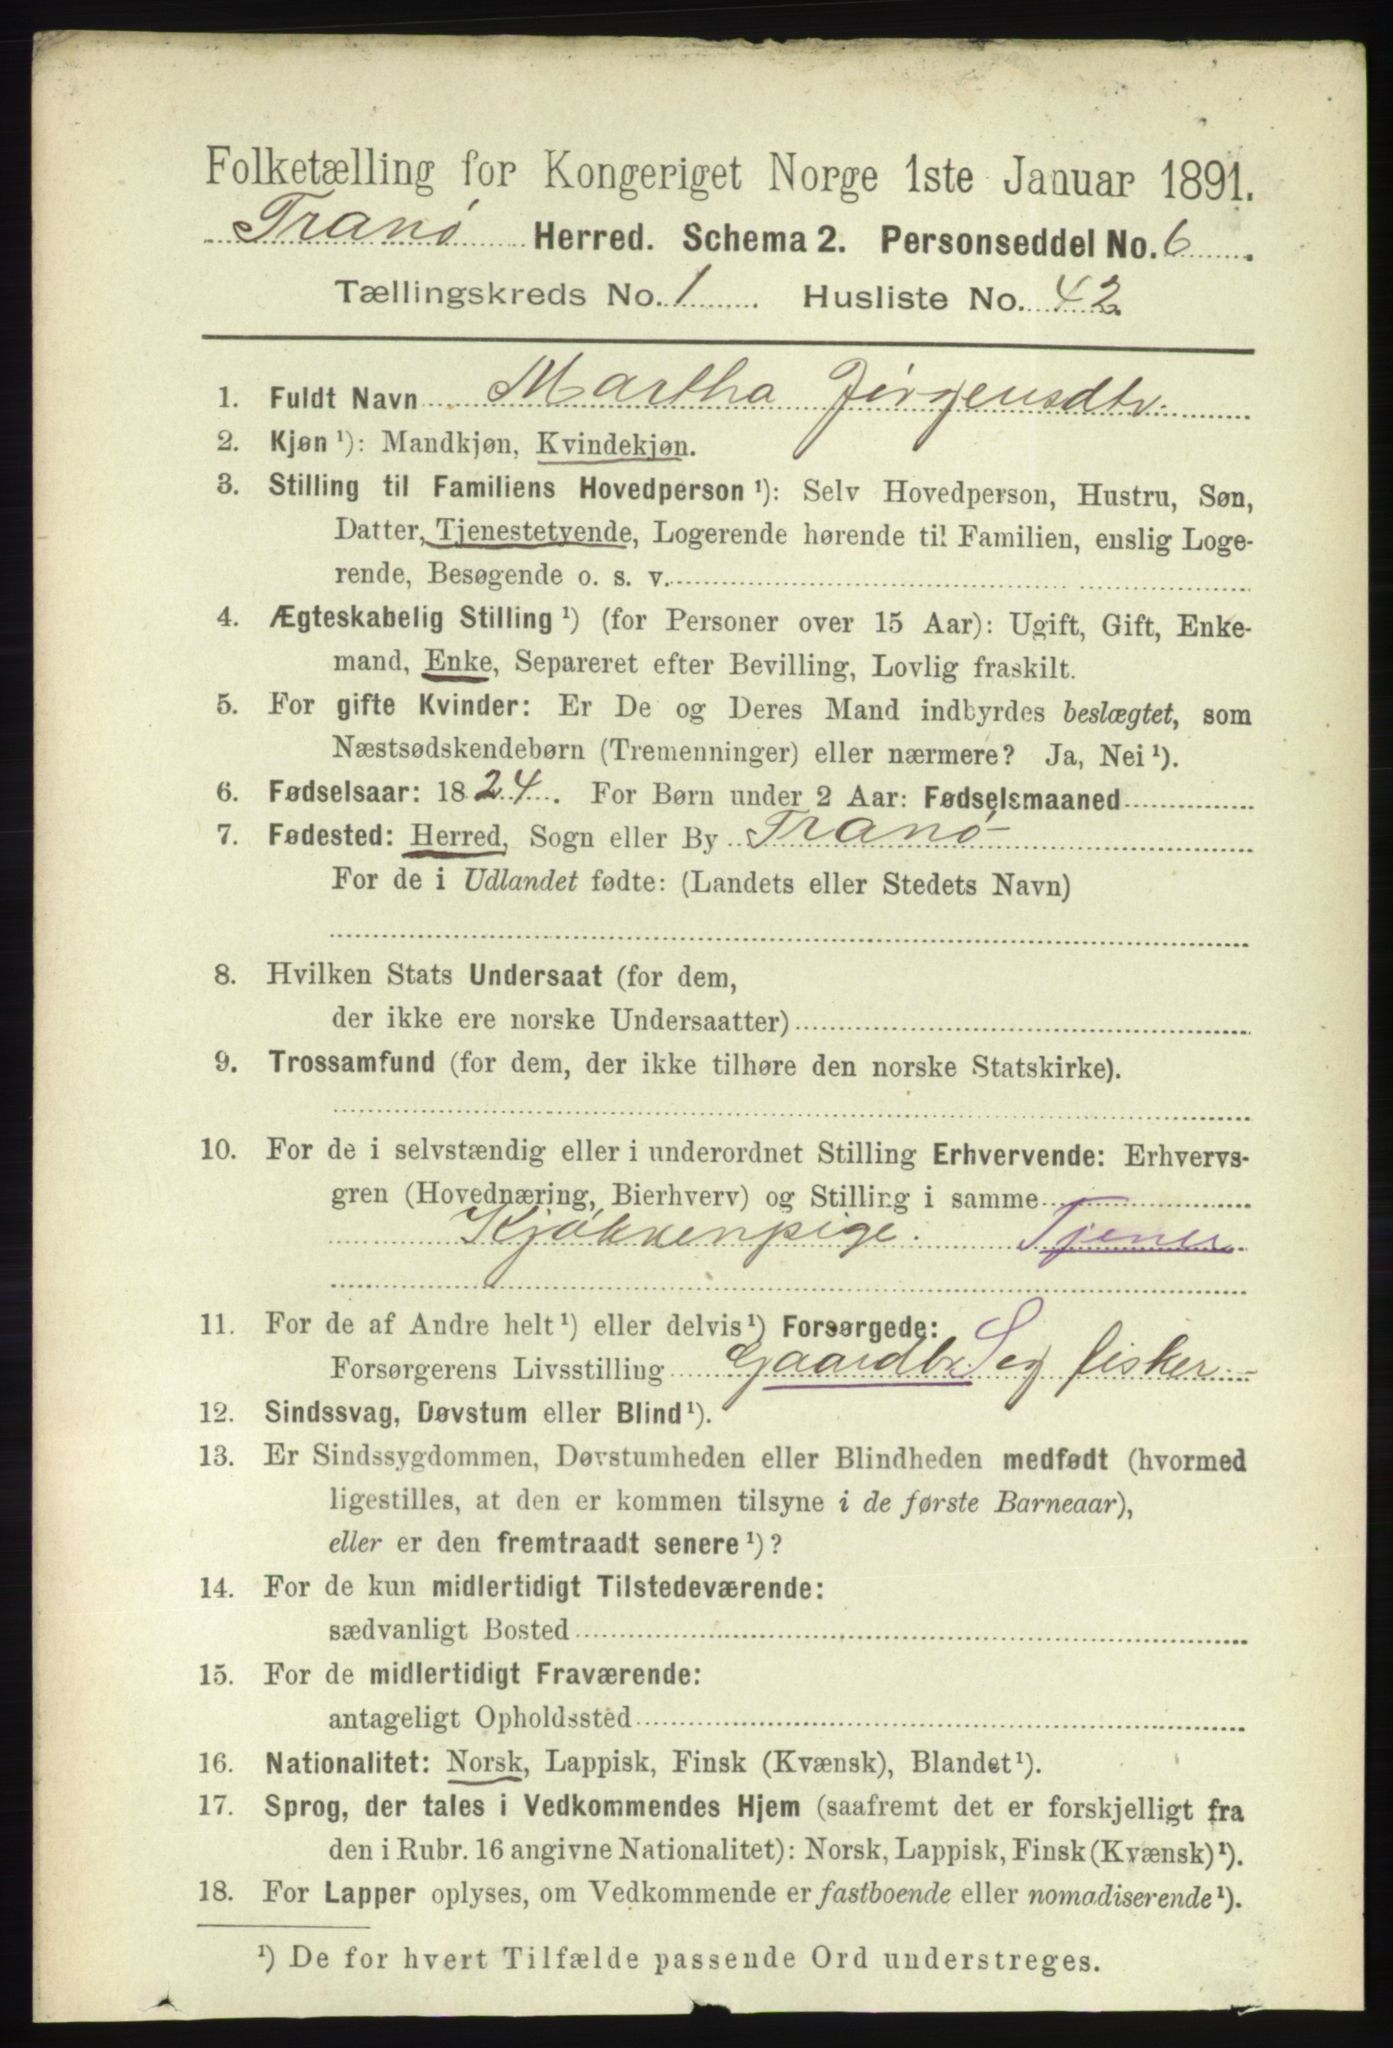 Folketælling for Kongeriget Norge 1ste Januar 1891.
Tranø Herred. Schema 2. Personseddel No. 6.
Tællingskreds No. 1 Husliste No. 42
1. Fuldt Navn Martha Jørgensdtr.
2. Kjøn ¹): Mandkjøn, Kvindekjøn.
3. Stilling til Familiens Hovedperson ¹): Selv Hovedperson, Hustru, Søn,
Datter, Tjenestetyende, Logerende hørende til Familien, enslig Loge-
rende, Besøgende o. s. v.
4. Ægteskabelig Stilling ¹) (for Personer over 15 Aar): Ugift, Gift, Enke-
mand, Enke, Separeret efter Bevilling, Lovlig fraskilt.
5. For gifte Kvinder: Er De og Deres Mand indbyrdes beslægtet, som
Næstsødskendebørn (Tremenninger) eller nærmere? Ja, Nei ¹).
6. Fødselsaar: 1824. For Børn under 2 Aar: Fødselsmaaned
7. Fødested: Herred, Sogn eller By Tranø
For de i Udlandet fødte: (Landets eller Stedets Navn)
8. Hvilken Stats Undersaat (for dem,
der ikke ere norske Undersaatter)
9. Trossamfund (for dem, der ikke tilhøre den norske Statskirke).
10. For de i selvstændig eller i underordnet Stilling Erhvervende: Erhvervs-
gren (Hovednæring, Bierhverv) og Stilling i samme
Kjøkkenpige. Tjener
11. For de af Andre helt ¹) eller delvis ¹) Forsørgede:
Forsørgerens Livsstilling Gaardbr. S og fisker
12. Sindssvag, Døvstum eller Blind ¹).
13. Er Sindssygdommen, Døvstumheden eller Blindheden medfødt (hvormed
ligestilles, at den er kommen tilsyne i de første Barneaar),
eller er den fremtraadt senere ¹)?
14. For de kun midlertidigt Tilstedeværende:
sædvanligt Bosted
15. For de midlertidigt Fraværende:
antageligt Opholdssted
16. Nationalitet: Norsk, Lappisk, Finsk (Kvænsk), Blandet ¹).
17. Sprog, der tales i Vedkommendes Hjem (saafremt det er forskjelligt fra
den i Rubr. 16 angivne Nationalitet): Norsk, Lappisk, Finsk (Kvænsk) ¹).
18. For Lapper oplyses, om Vedkommende er fastboende eller nomadiserende ¹).
¹) De for hvert Tilfælde passende Ord understreges.